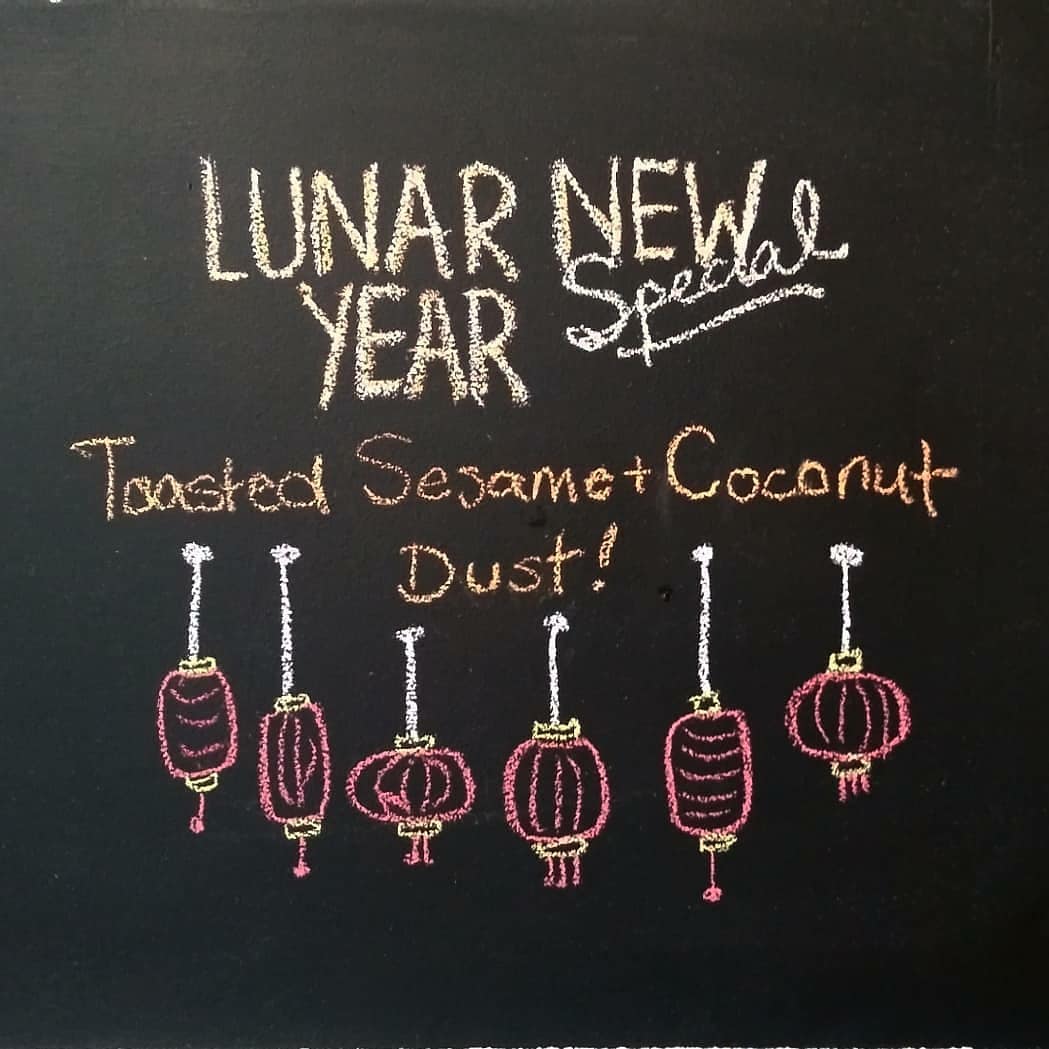 LUNAR NEW
YEAR Special
Toasted Sesame + Coconut
Dust!